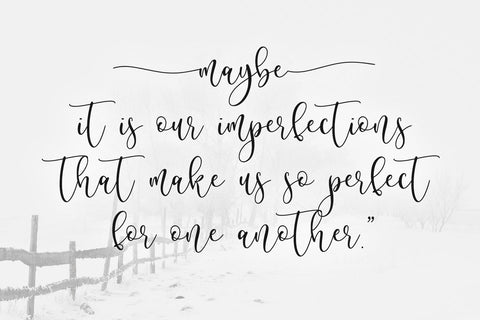 maybe
it is our imperfections
that make us so perfect
for one another.”